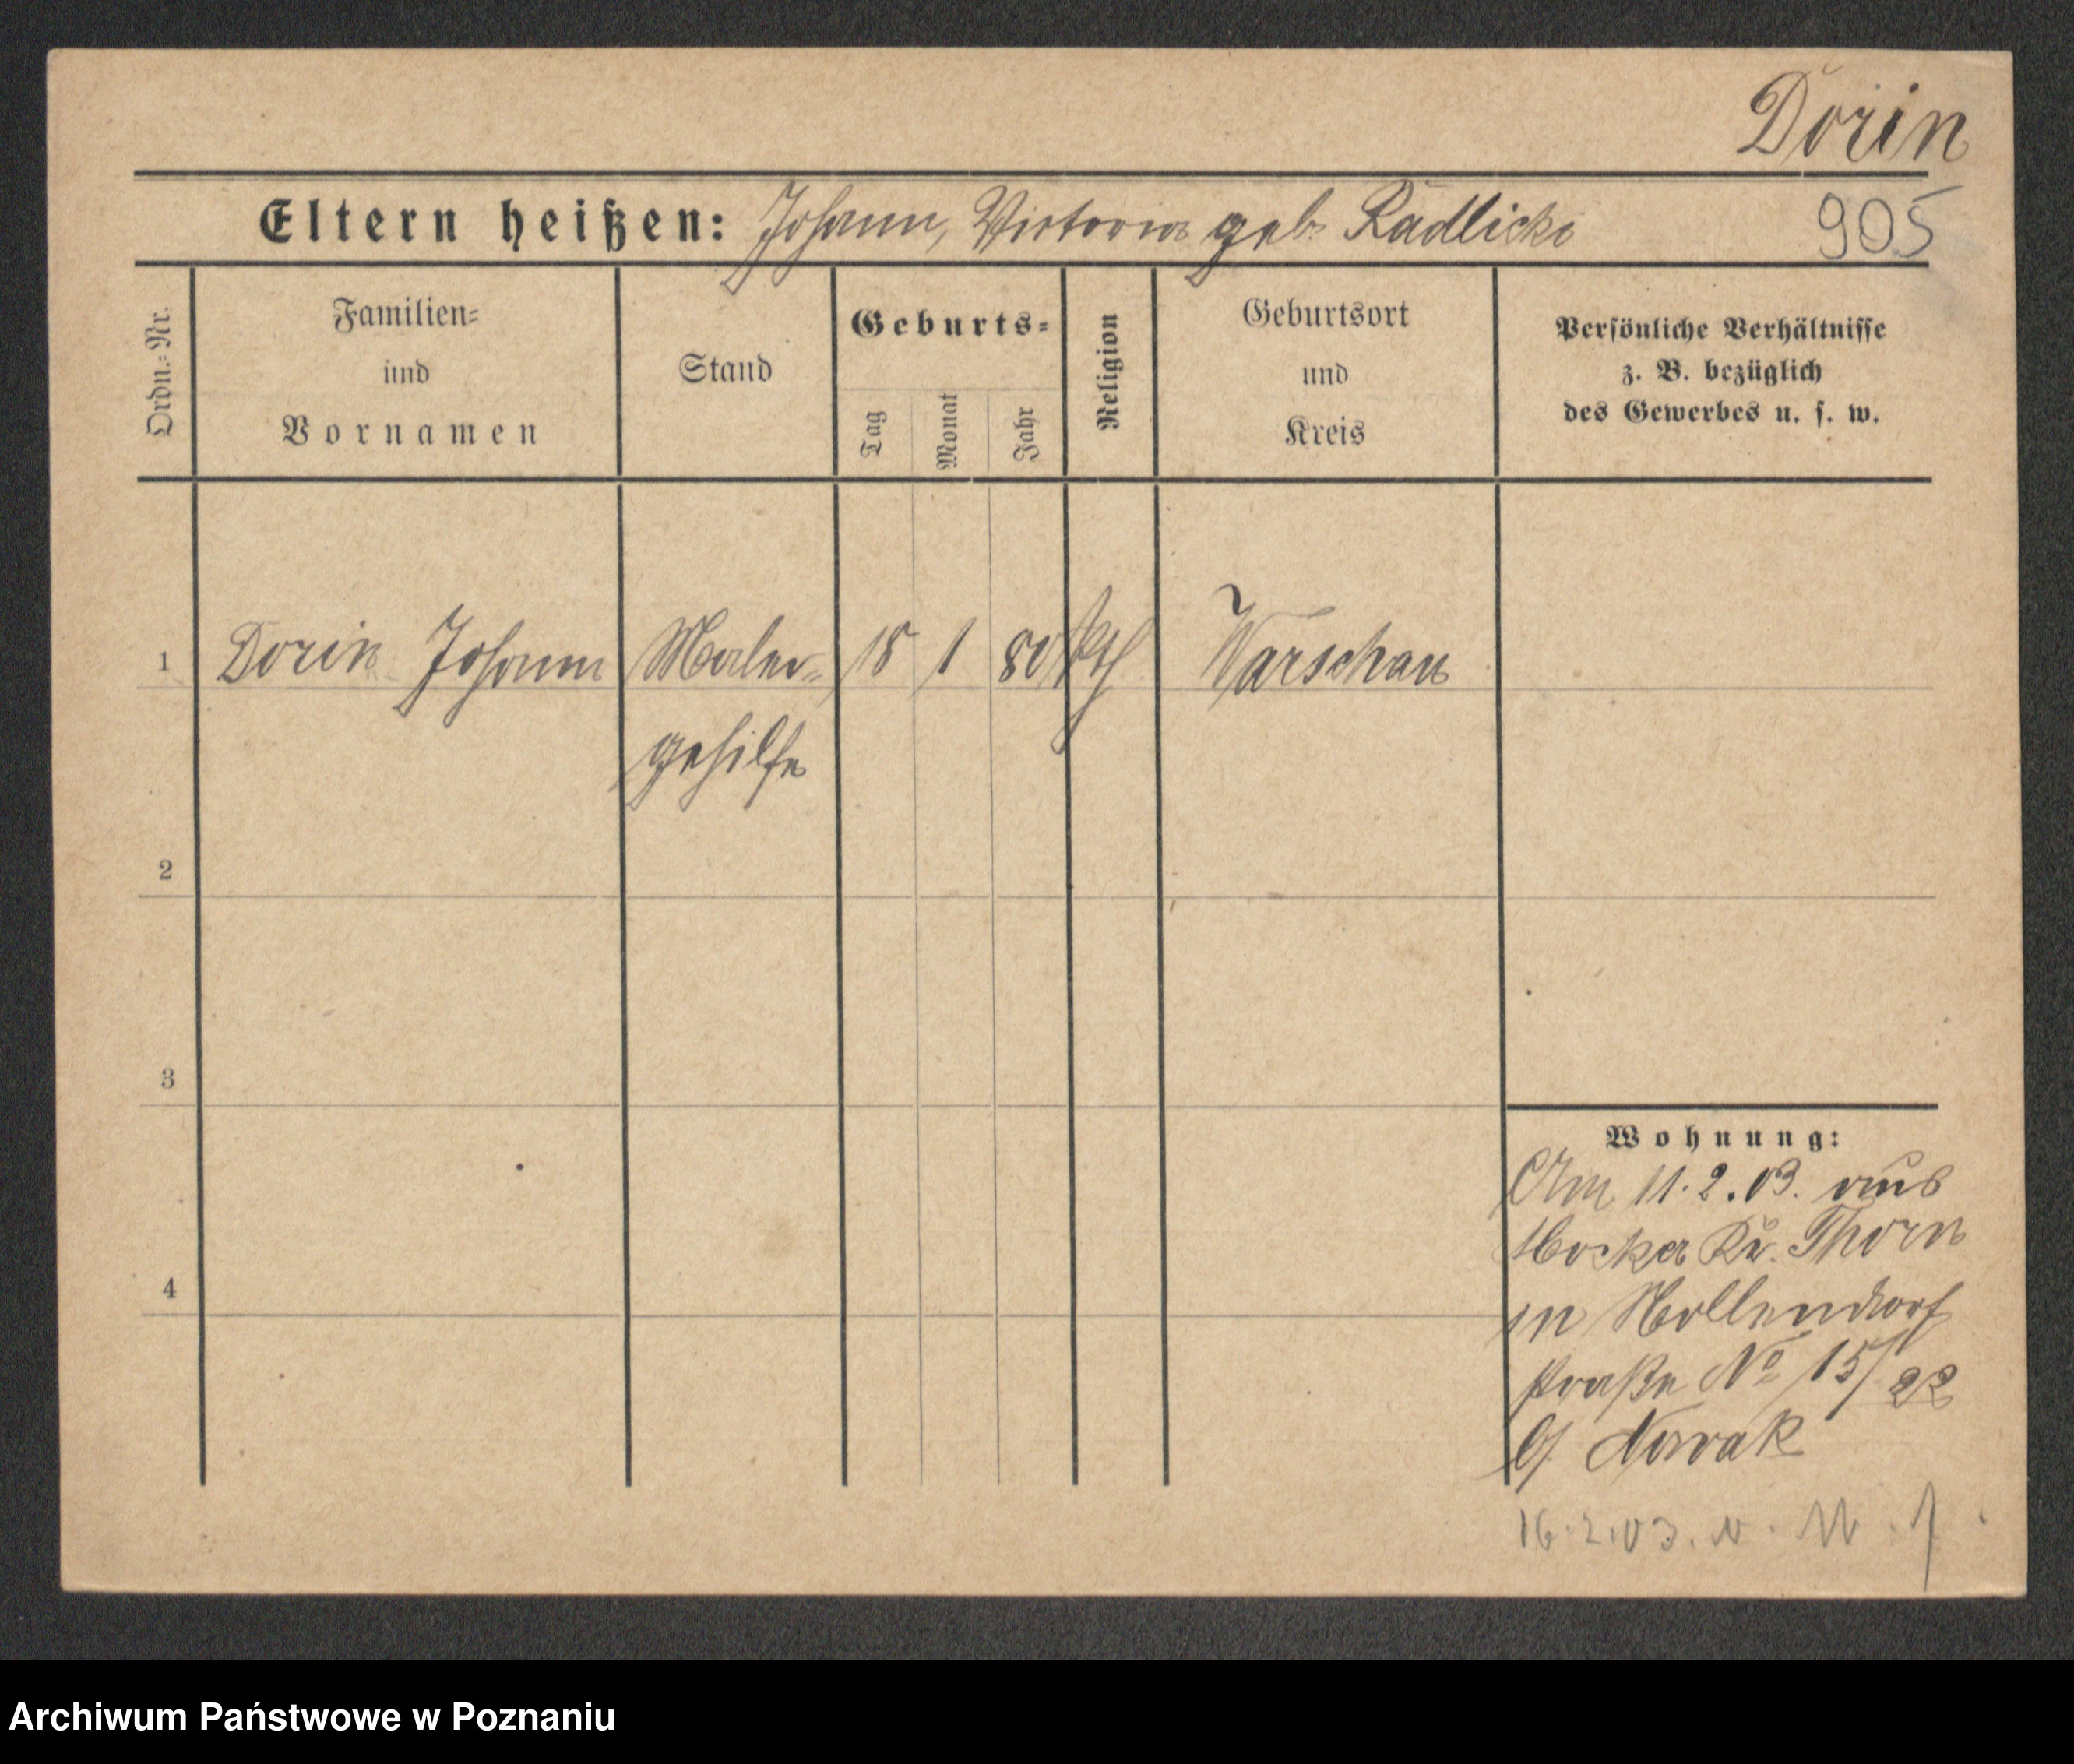 Dorin
Eltern heißen: Johann, Victoria geb. Radlicka
905
Ordn.-Nr.
Familien-
und
Vornamen
Stand
Geburts-
Tag
Monat
Jahr
Religion
Geburtsort
und
Kreis
Persönliche Verhältnisse
z. B. bezüglich
des Gewerbes u. s. w.
1 Dorin Johann Maler- 18 1 80 kth Warschau
gehilfe
2
3
4
Wohnung:
Am 11.2.03. aus
Mocker Kr. Thorn
in Nollendorf
straße No 15/22
b/ Nowak
16.2.03. n.
Archiwum Państwowe w Poznaniu